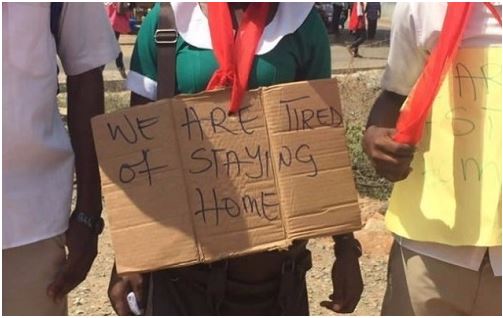 WE ARE TIRED
of STAYING
HOME